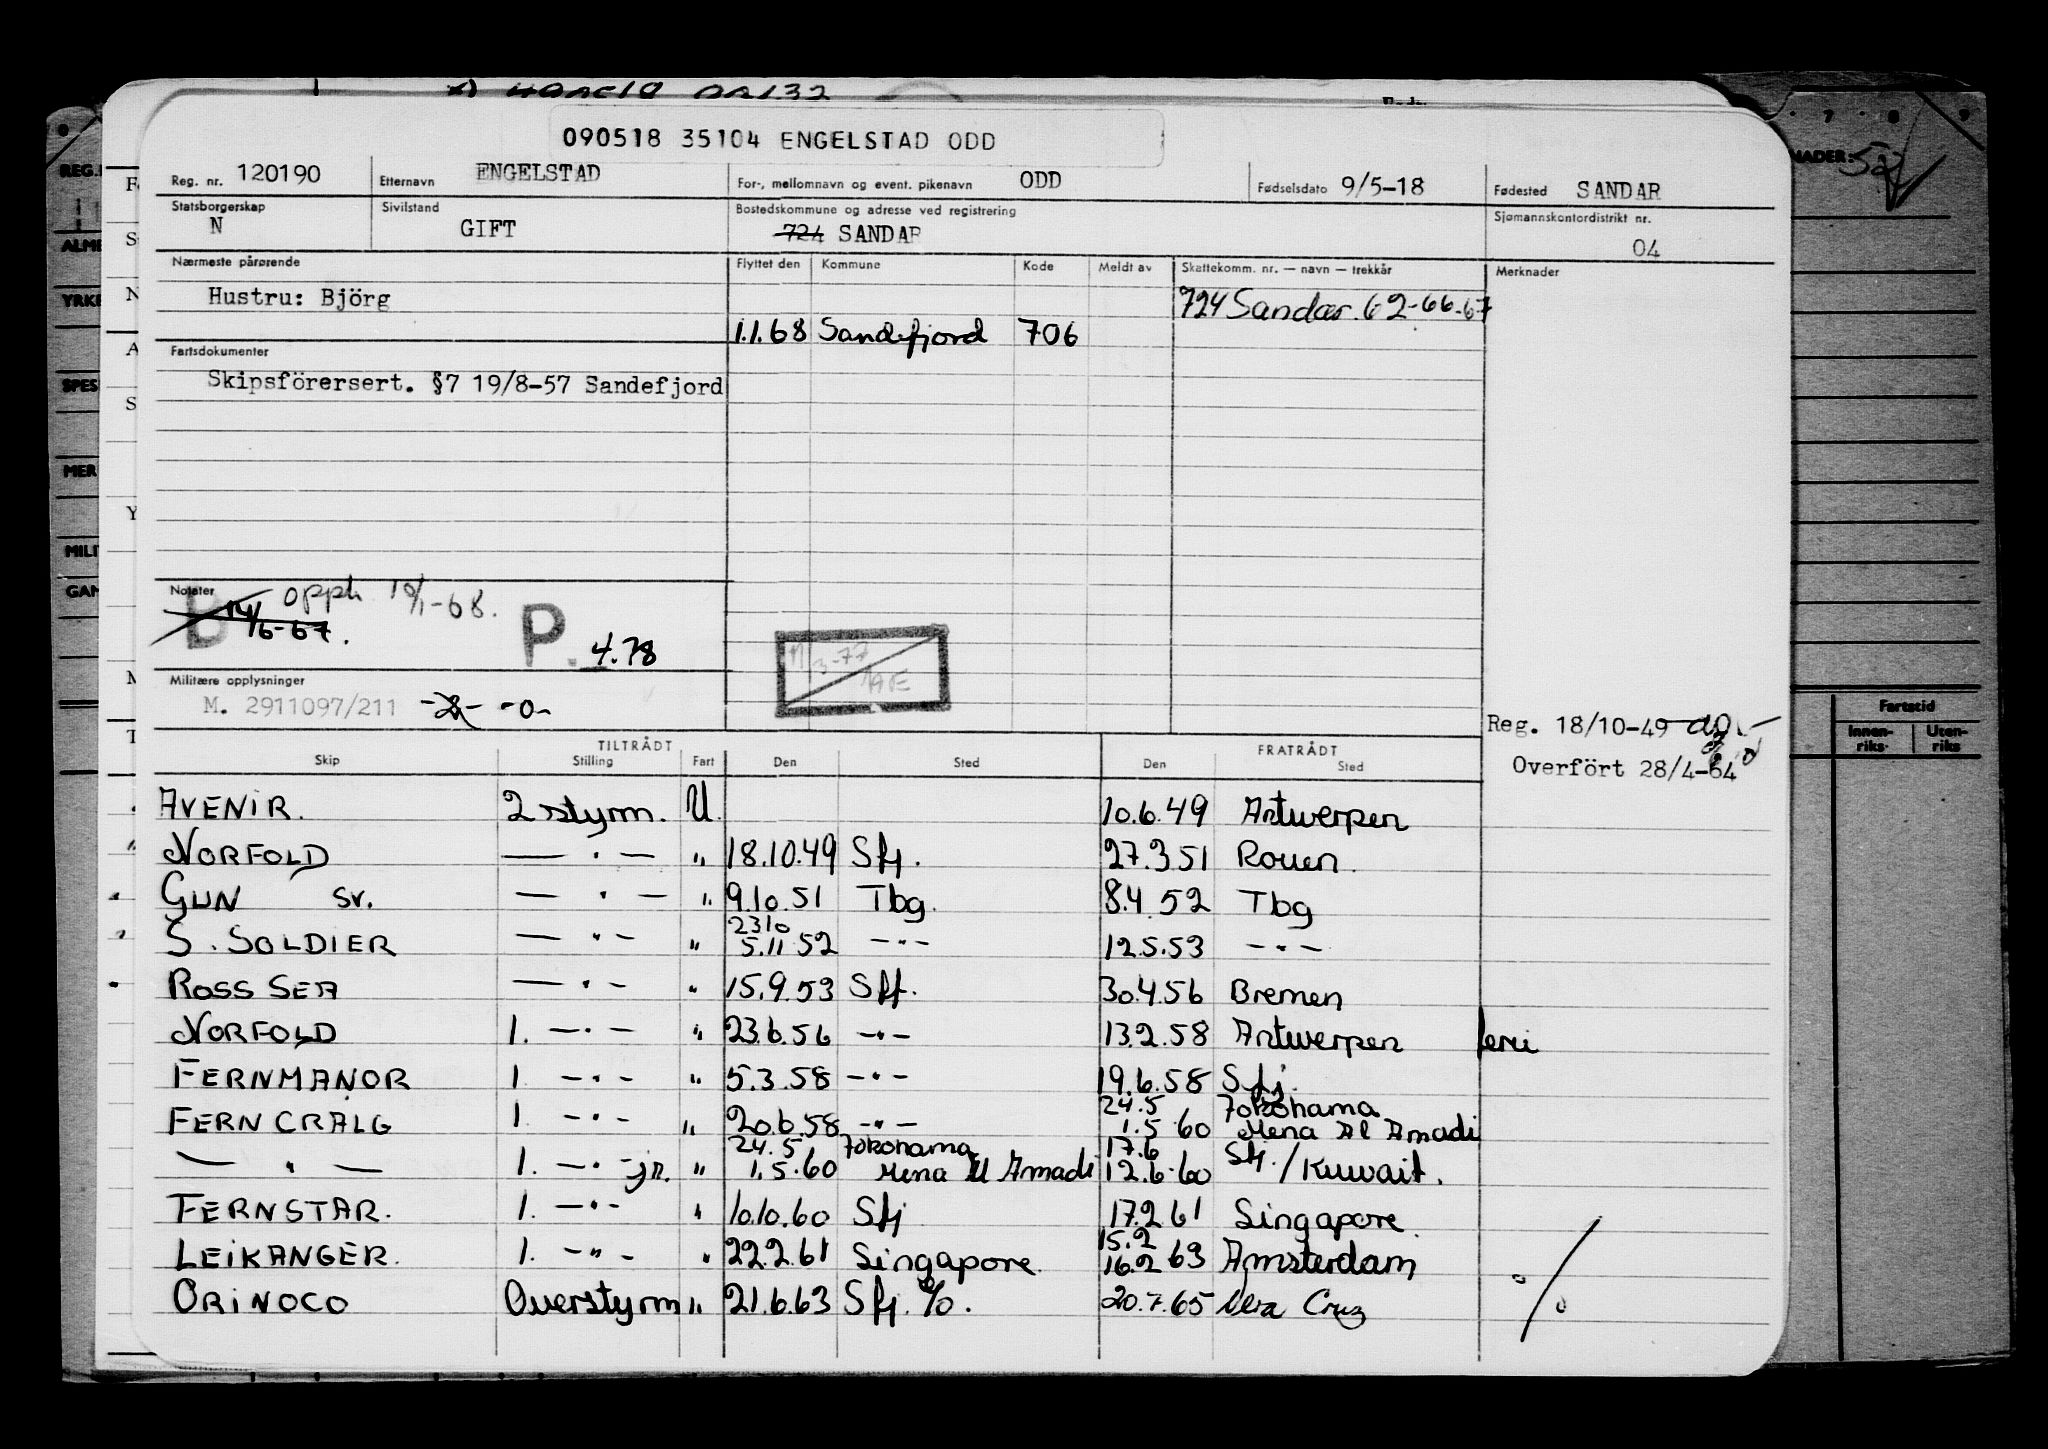 090518 35104 ENGELSTAD ODD
Reg. nr. 120190 Etternavn ENGELSTAD For-, mellomnavn og event. pikenavn ODD Fødselsdato 9/5-18 Fødested SANDAR
Statsborgerskap N Sivilstand GIFT Bostedskommune og adresse ved registrering 724 SANDAR Sjømannskontordistrikt nr. 04
Nærmeste pårørende Flyttet den Kommune Kode Meldt av Skattekomm. nr. — navn — trekkår Merknader
Hustru: Björg 724 Sandar. 62-66-67
1.1.68 Sandefjord 706
Fartsdokumenter
Skipsförersert. §7 19/8-57 Sandefjord
Notater opph 10/1-68.
B 14/6-67. P. 4.78
3-77
Militære opplysninger
M. 2911097/211 -o-
Reg. 18/10-49
Overfört 28/4-64
TILTRÅDT FRATRÅDT
Skip Stilling Fart Den Sted Den Sted
AVENIR. 2 styrm. U. 10.6.49 Antwerpen
NORFOLD — . — " 18.10.49 Sfj. 27.3.51 Rouen.
GUN sv. — . — " 9.10.51 Tbg. 8.4.52 Tbg
2310
S. SOLDIER — " — " 5.11.52 — " — 12.5.53 — " —
ROSS SEA — . — " 15.9.53 Sfj. 30.4.56 Bremen
NORFOLD 1. — . — " 23.6.56 — " — 13.2.58 Antwerpen
FERNMANOR 1 — . — " 5.3.58 — " — 19.6.58 Sfj.
24.5 Yokohama
FERNCRAIG 1. — . — " 20.6.58 — " — 1.5.60 Mena Al Amadi
24.5 Yokohama 17.6
— " — 1. — . — jr. " 1.5.60 Mena Al Amadi 12.6.60 Sfj. / Kuwait.
FERNSTAR. 1. — . — " 10.10.60 Sfj 17.2.61 Singapore.
15.2
LEIKANGER. 1. — " — " 22.2.61 Singapore. 16.2 63 Amsterdam
ORINOCO Overstyrm " 21.6.63 Sfj. %. 20.7.65 Vera Cruz
Fartstid
Innen-
riks Uten-
riks